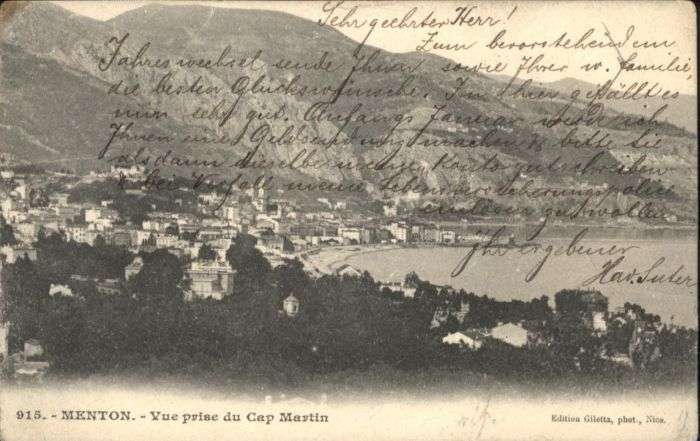 Sehr geehrter Herr!
Zum bevorstehendem
Jahreswechsel sende Ihnen sowie Ihrer w. Familie
die besten Glückswünsche. Im hier gefällt es
mir sehr gut. Anfangs Januar werde ich
Ihnen eine Geldsendung machen & bitte Sie
alsdann dieselbe meinem Konto gutschreiben
& bei Verfall meine Lebensversicherungspolice
zu wollen
Ihr ergebener
Suter
915. - MENTON. - Vue prise du Cap Martin
Edition Giletta, phot., Nice.